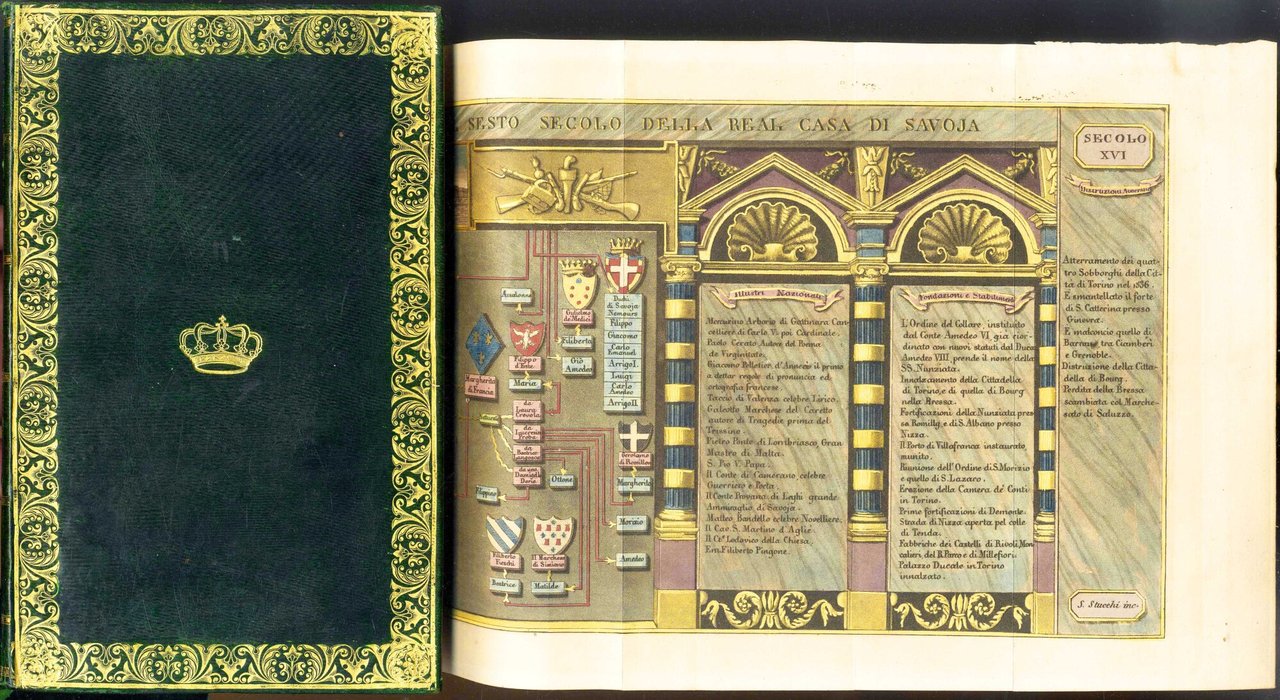 SESTO SECOLO DELLA REAL CASA DI SAVOJA
SECOLO
XVI
Distruzioni Avvenim
Atterramento dei quat-
tro Sobborghi della Cit-
tà di Torino nel 1536.
E smantellato il forte
di S. Catterina presso
Ginevra.
E malconcio quello di
Barraux tra Ciamberì
e Grenoble.
Distruzione della Citta-
della di Bourg.
Perdita della Bressa
scambiata col Marche-
sato di Saluzzo.
S. Stucchi inc.
Illustri Nazionali
Mercurino Arborio di Gattinara Can-
celliere di Carlo V. poi Cardinale.
Paolo Cerato Autore del Poema
de Virginitate.
Giacomo Pelletier d'Annecio il primo
a dettar regole di pronuncia ed
ortografia francese.
Taccio di Valenza celebre Lirico.
Galeotto Marchese del Caretto
autore di Tragedie prima del
Trissino.
Pietro Ponte di Lombriasco, Gran
Mastro di Malta.
S. Pio V. Papa.
Il Conte di Camerano celebre
Guerriero e Poeta.
Il Conte Provana di Leghì grande
Ammiraglio di Savoja.
Matteo Bandello celebre Novelliere.
Il Cav. S. Martino d'Aglie.
Il Cte Lodovico della Chiesa.
Em. Filiberto Pingone.
Fondazioni e Stabiliment
L'Ordine del Collare, instituito
dal Conte Amedeo VI. già rior-
dinato con nuovi statuti dal Duca
Amedeo VIII. prende il nome della
SS. Nunziata.
Innalzamento della Cittadella
di Torino, e di quella di Bourg
nella Bressa.
Fortificazioni della Nunziata pres-
so Romilly e di S. Albano presso
Nizza.
Il Porto di Villafranca instaurato,
munito.
Riunione dell'Ordine di S. Morizio
e quello di S. Lazaro.
Erezione della Camera de' Conti
in Torino.
Prime fortificazioni di Demonte.
Strada di Nizza aperta pel colle
di Tenda.
Fabbriche dei Castelli di Rivoli, Mon-
calieri, del R. Parco e di Millefiori.
Palazzo Ducale in Torino
innalzato.
Duchi
di Savoja
Nemours
Filippo
Giacomo
Carlo
Emanuel
Arrigo I.
Luigi
Carlo
Amedeo
Arrigo II.
Guglielmo
de Medici
Filiberta
Giò
Amedeo
Filippo
d'Este
Maria
Margherita
di Francia
da
Laura
Crevola
da
Lucrezia
Proba
da
Beatrice
Langosco
da una
Damigella
Doria
Ottone
Filippino
Margherita
Morizio
Amedeo
Filiberto
Fieschi
Beatrice
Il Marchese
di Simiane
Matilde